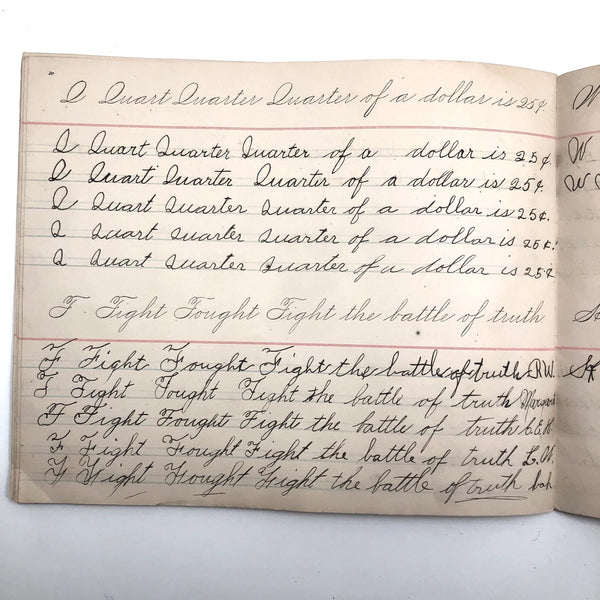 20
Q Quart Quarter Quarter of a dollar is 25¢
Q Quart Quarter Quarter of a dollar is 25¢.
Q Quart Quarter Quarter of a dollar is 25¢.
Q Quart Quarter Quarter of a dollar is 25¢.
Q Quart Quarter Quarter of a dollar is 25¢.
Q Quart Quarter Quarter of a dollar is 25¢
F Fight Fought Fight the battle of truth
F Fight Fought Fight the battle of truth R.W.
F Fight Fought Fight the battle of truth
F Fight Fought Fight the battle of truth C.E.K.
F Fight Fought Fight the battle of truth L.
F Fight Fought Fight the battle of truth bah
W
W
W